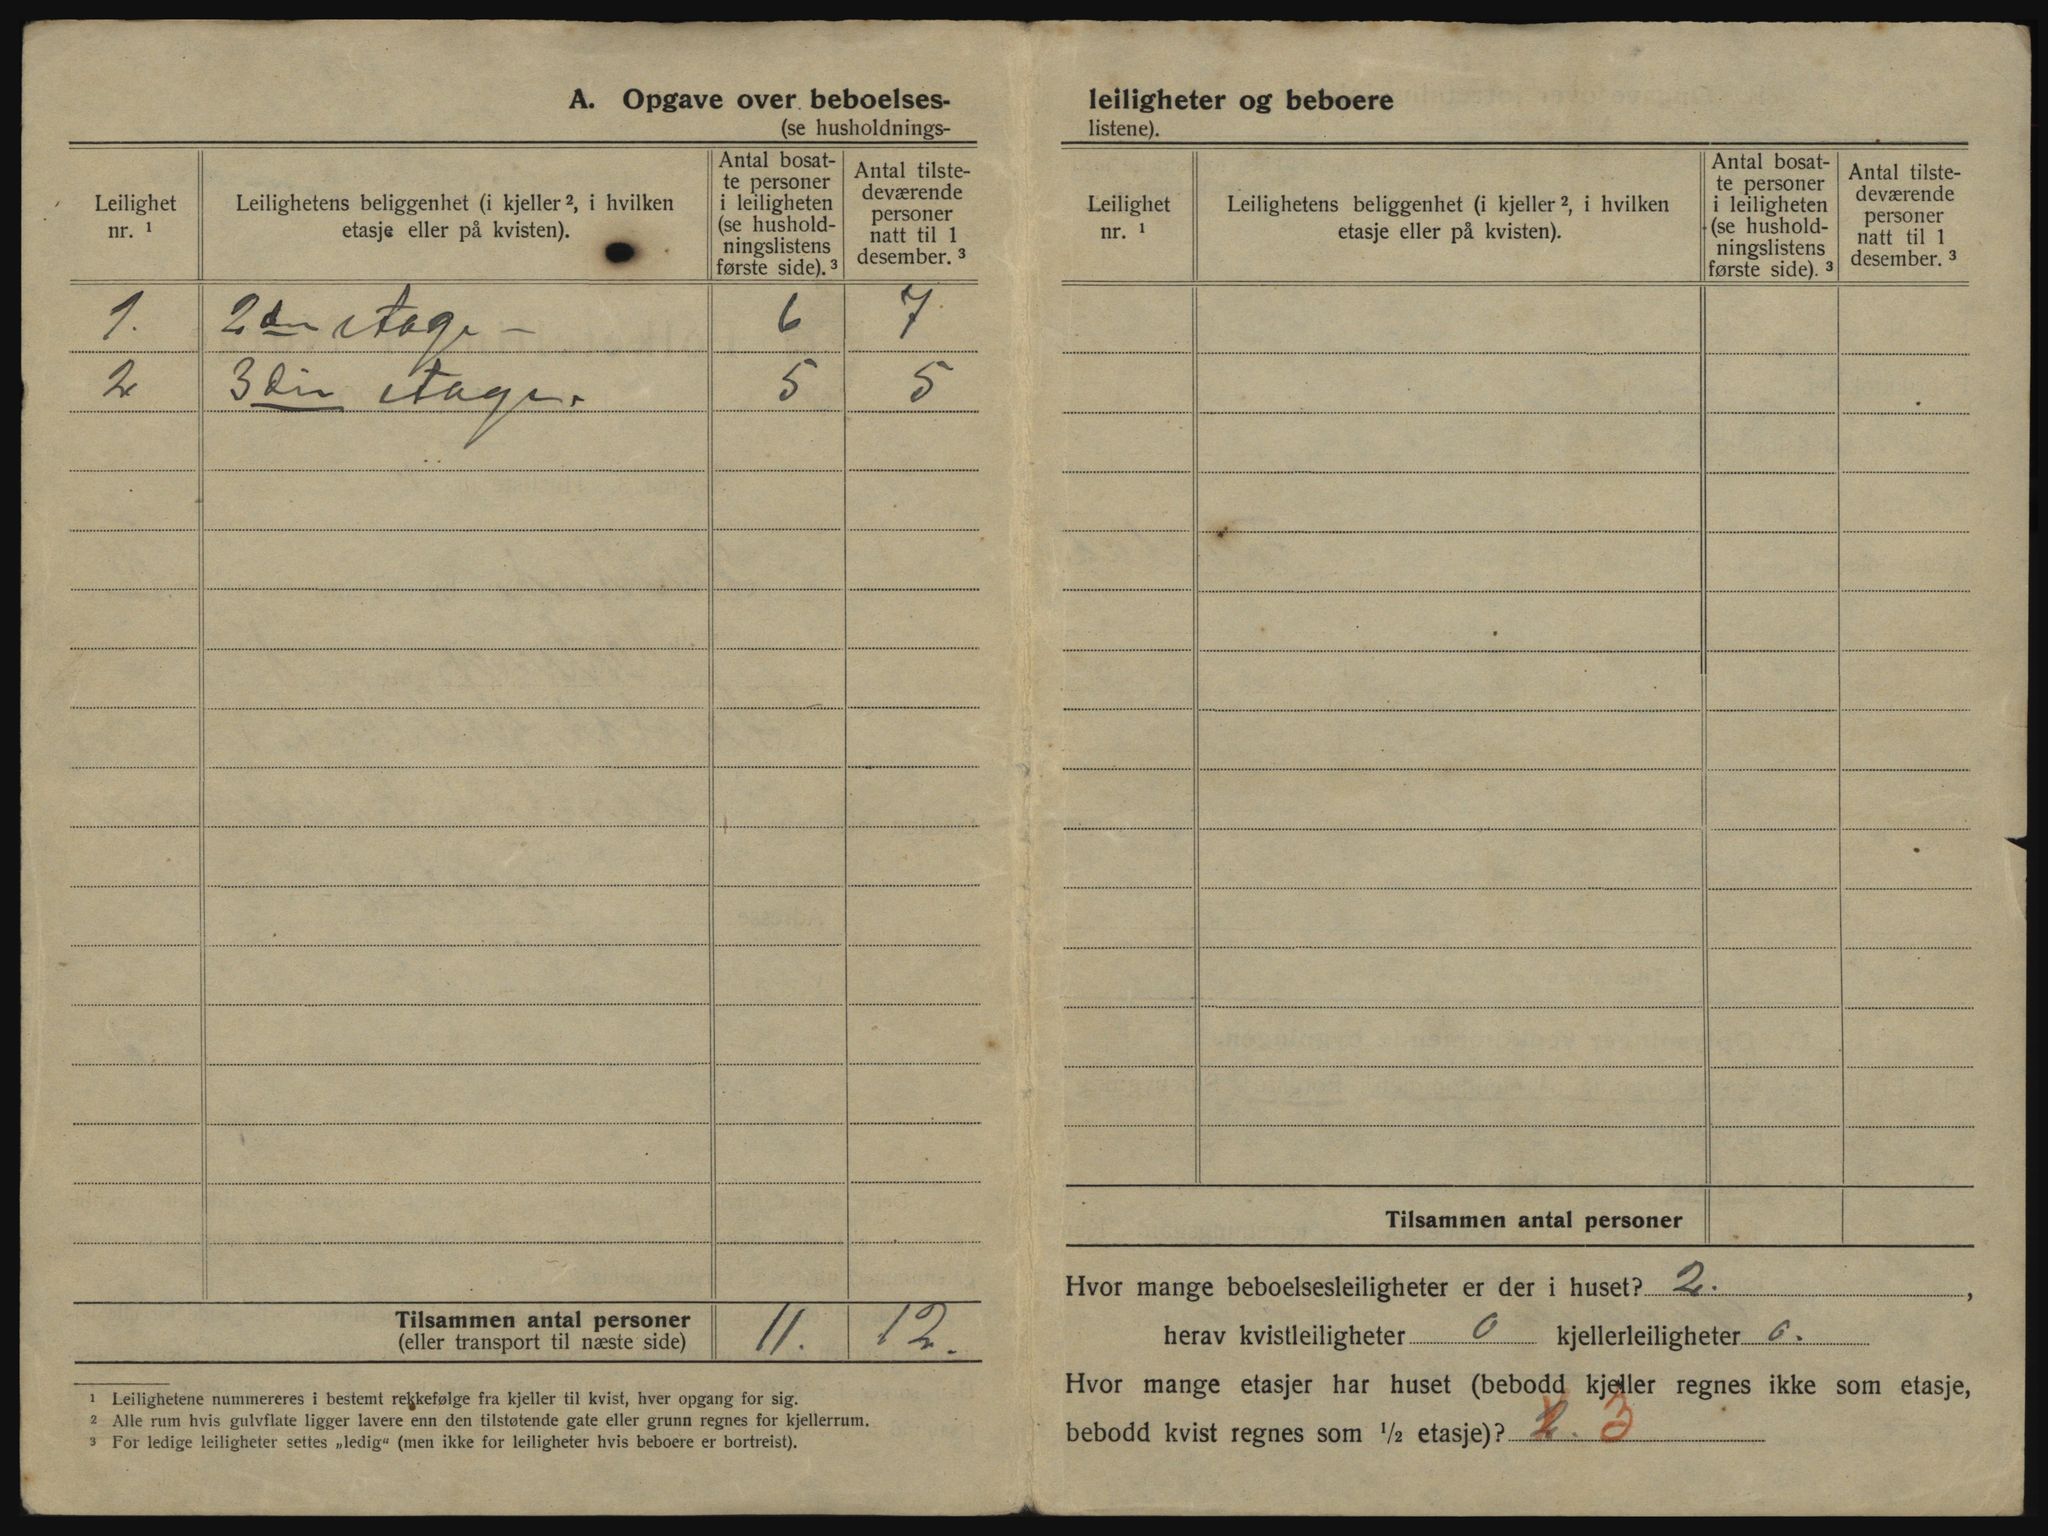 A. Opgave over beboelses-
(se husholdnings-
Leilighet nr. ¹
Leilighetens beliggenhet (i kjeller ², i hvilken etasje eller på kvisten).
Antal bosat-
te personer
i leiligheten
(se hushold-
ningslistens
første side). ³
Antal tilste-
deværende
personer
natt til 1
desember. ³
1. 2den etage – 6 7
2 3die etage. 5 5
Tilsammen antal personer
(eller transport til næste side) 11. 12.
¹ Leilighetene nummereres i bestemt rekkefølge fra kjeller til kvist, hver opgang for sig.
² Alle rum hvis gulvflate ligger lavere enn den tilstøtende gate eller grunn regnes for kjellerrum.
³ For ledige leiligheter settes „ledig“ (men ikke for leiligheter hvis beboere er bortreist).
leiligheter og beboere
listene).
Leilighet nr. ¹
Leilighetens beliggenhet (i kjeller ², i hvilken etasje eller på kvisten).
Antal bosat-
te personer
i leiligheten
(se hushold-
ningslistens
første side). ³
Antal tilste-
deværende
personer
natt til 1
desember. ³
Tilsammen antal personer
Hvor mange beboelsesleiligheter er der i huset? 2.,
herav kvistleiligheter 0 kjellerleiligheter 0.
Hvor mange etasjer har huset (bebodd kjeller regnes ikke som etasje,
bebodd kvist regnes som ½ etasje)? 2. 3